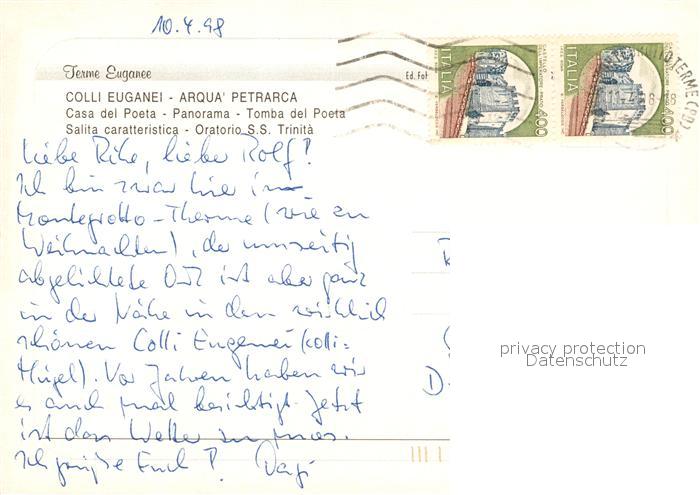 10.4.98
Terme Euganee
Ed. Fot
COLLI EUGANEI - ARQUA' PETRARCA
Casa del Poeta - Panorama - Tomba del Poeta
Salita caratteristica - Oratorio S.S. Trinità
ITALIA 400
ITALIA 400
TERME (PD)
Liebe Rike, lieber Rolf!
Ich bin zwar hier in
Montegrotto-Therme (wie zu
Weihnachten), der umseitig
abgelichtete Ort ist aber ganz
in der Nähe in den wirklich
schönen Colli Euganei (colli=
Hügel). Vor Jahren haben wir
es auch mal besichtigt. Jetzt
ist das Wetter zu mies.
Ich grüße Euch!
D.
privacy protection
Datenschutz